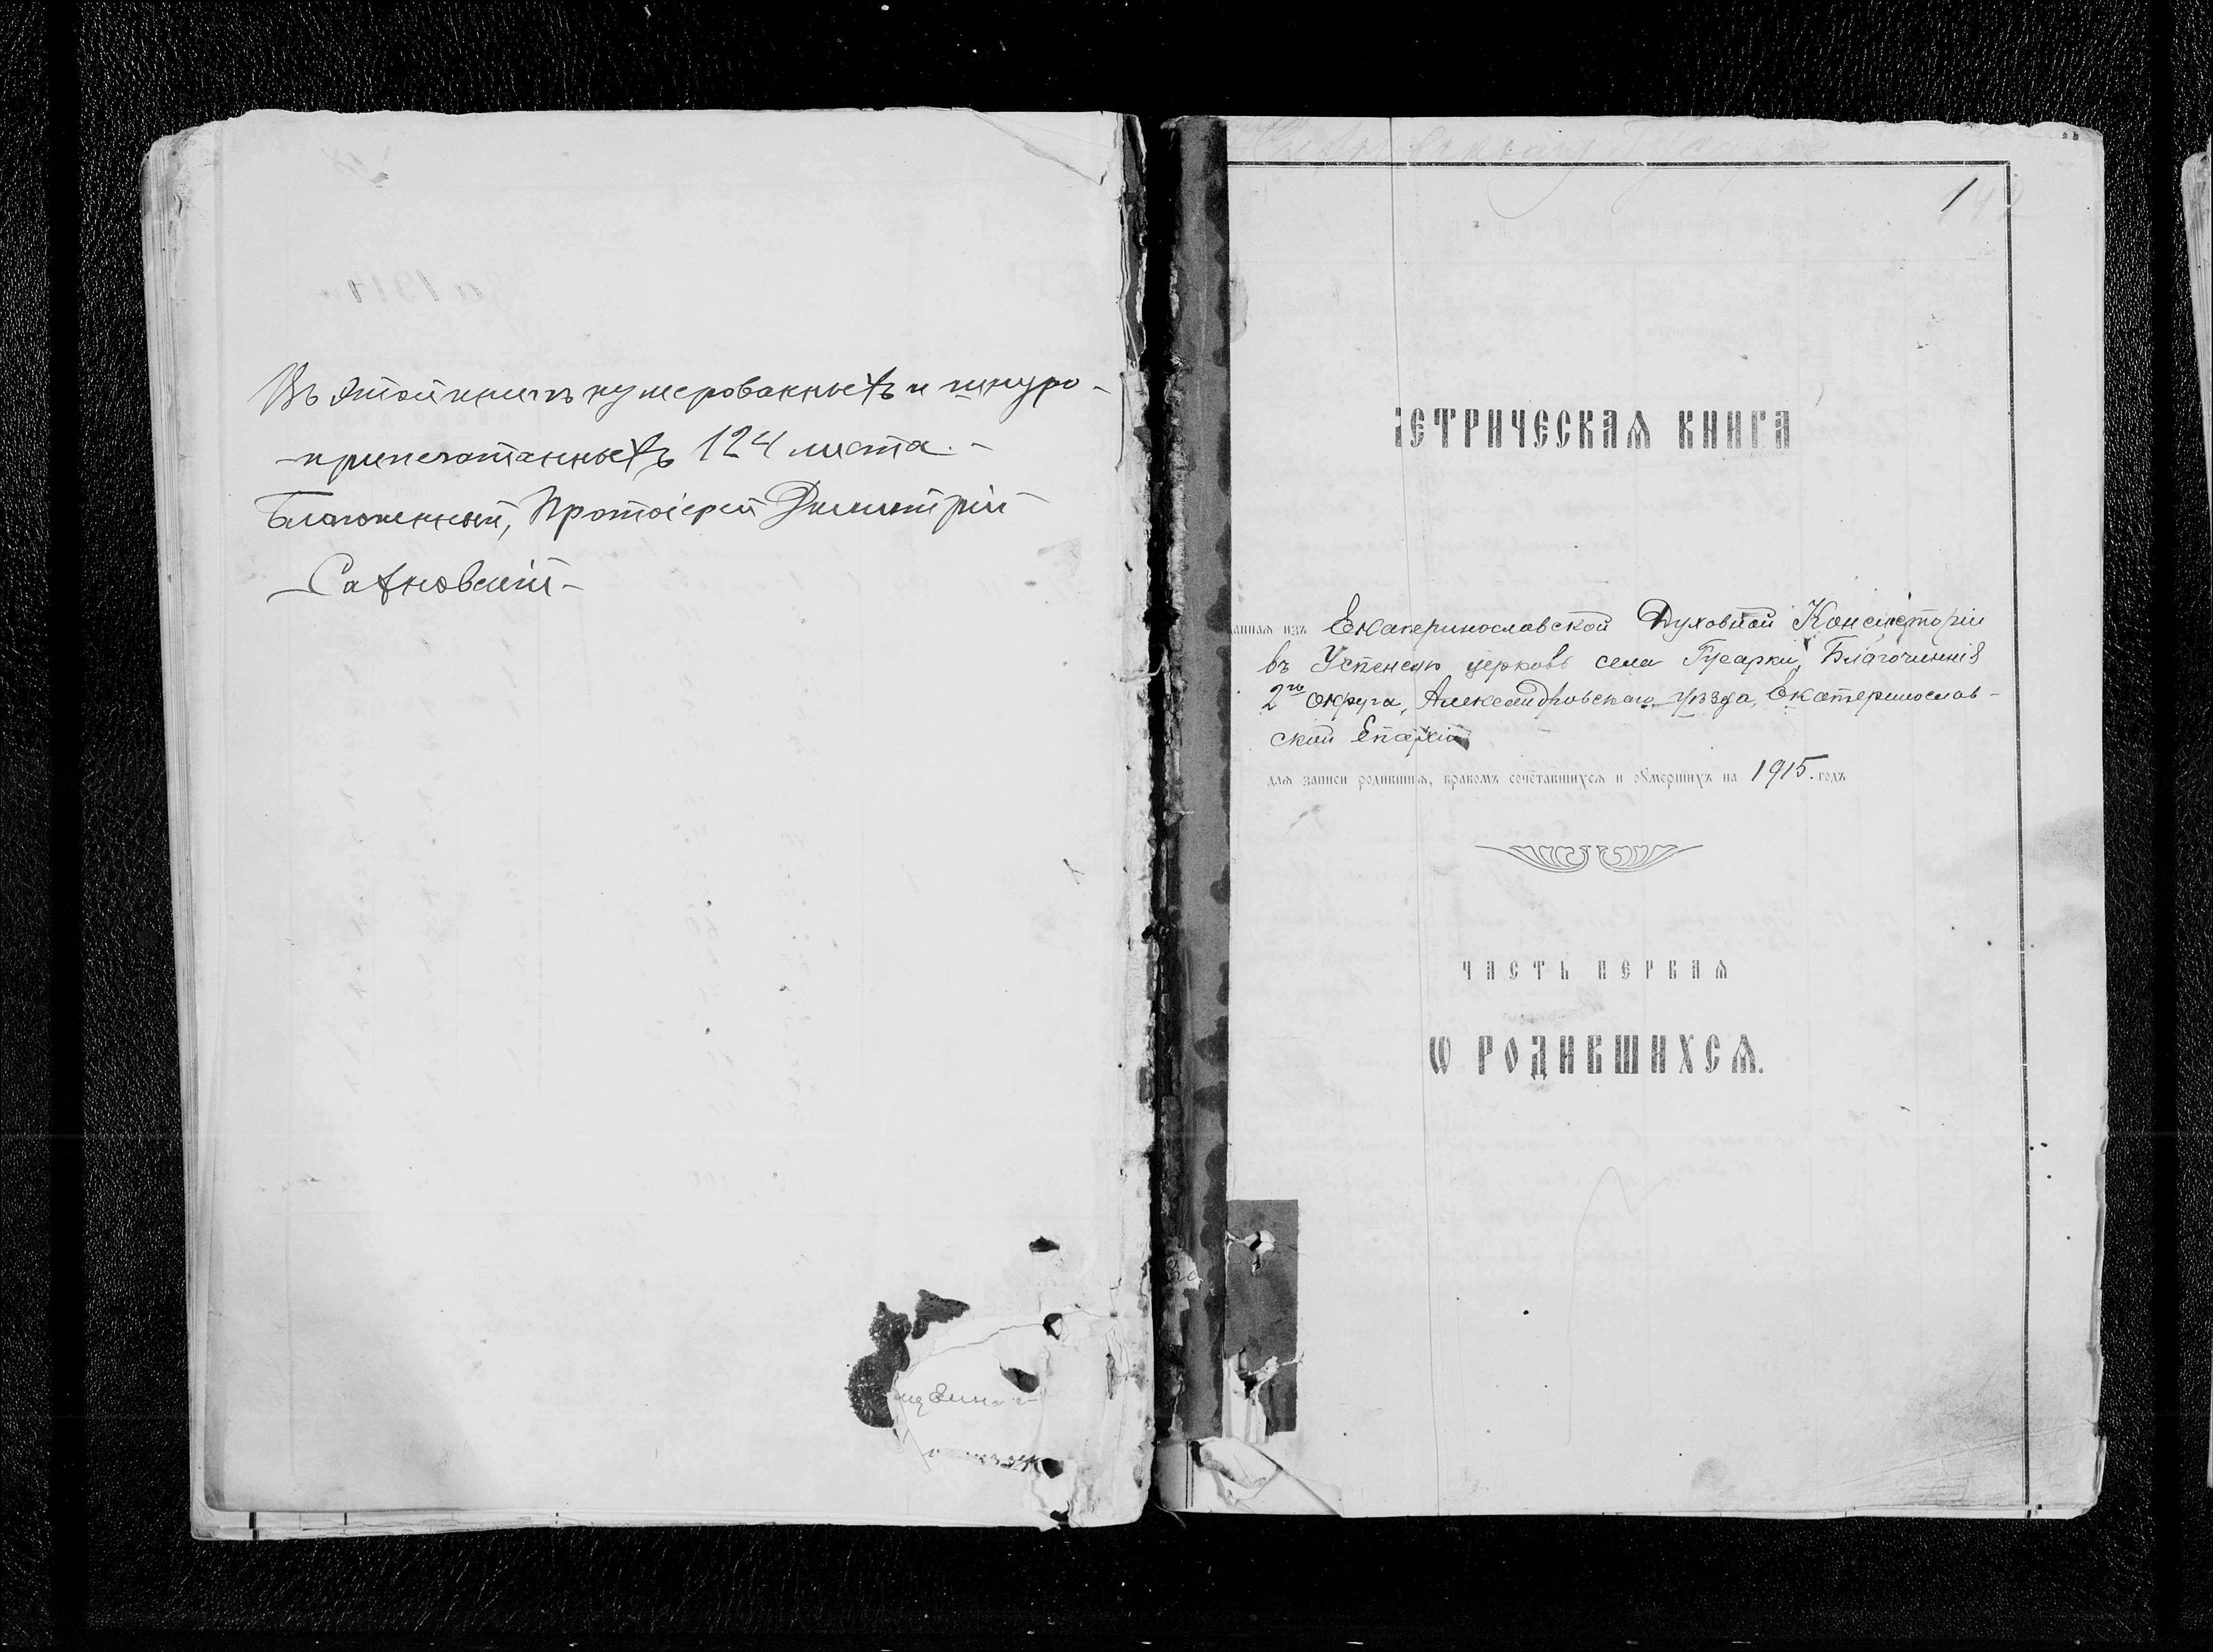 Въ этой книгѣ нумерованныхъ и шнуро-
-припечатанныхъ 124 листа.-
Благочинный, Протоіерей Димитрій
-Сахновскій-
1
142
МЕТРИЧЕСКАѦ КНИГА
данная изъ Екатеринославской Духовной Консисторіи
въ Успенскую церковь села Гусарки, Благочинія
2го округа, Александровскаго уѣзда, Екатеринослав-
ской Епархіи
для записи родившихся, бракомъ сочетавшихся и оумершихъ на 1915. годъ
ЧАСТЬ ПЕРВАѦ
Ѡ РОДИВШИХСѦ.